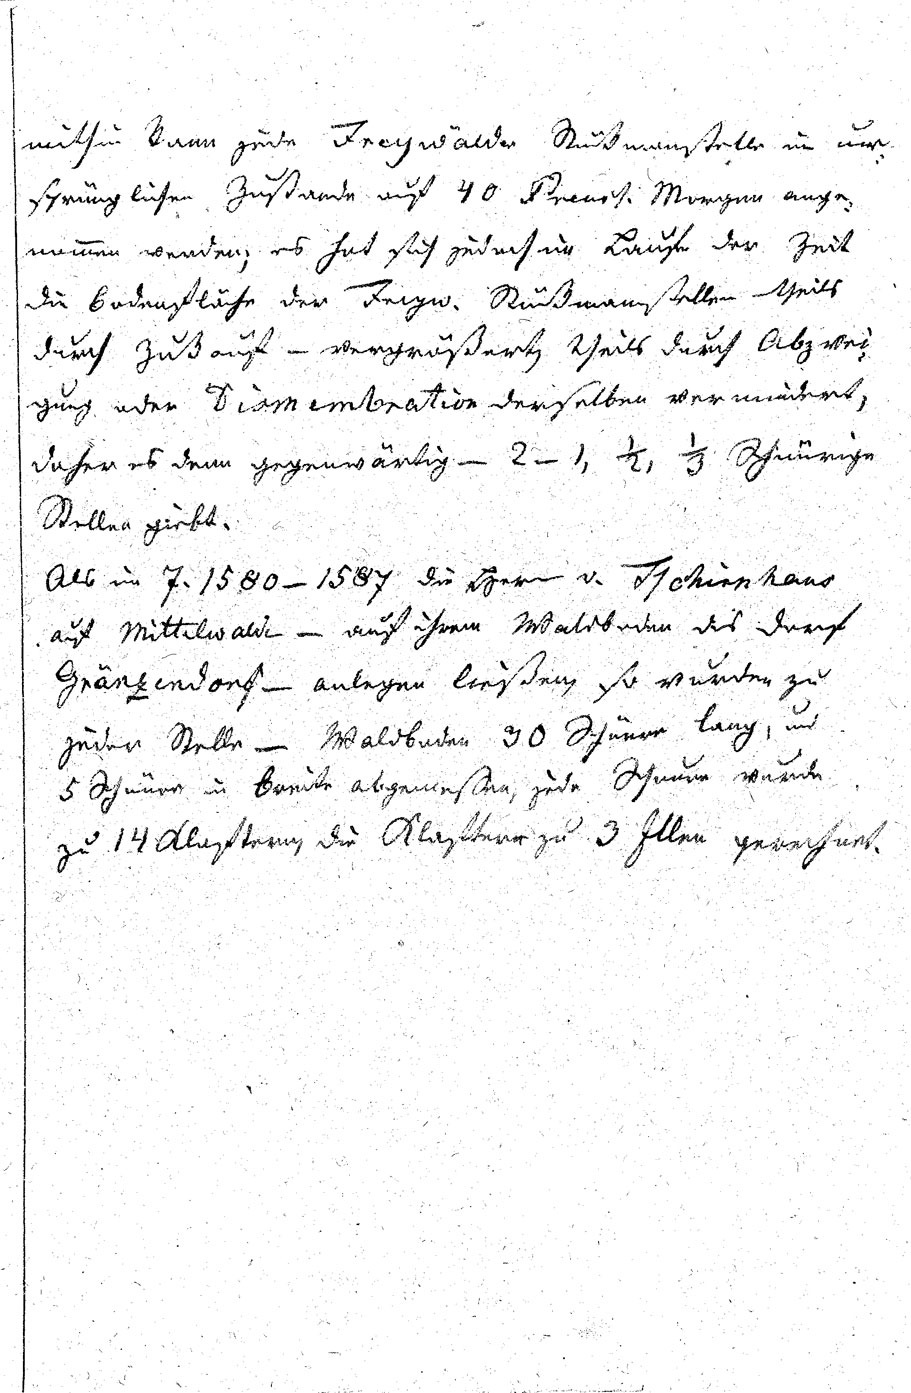 mithin kann jede Freywälder Stückmannstelle im ur-
sprünglichen Zustande auf 40 Preuss. Morgen ange-
nom̄en werden; es hat sich jedoch im Laufe der Zeit
die Bodenfläche der Freyw. Stückmannstellen theils
durch Zukauf – vergrößert, theils durch Abzwei-
gung oder Dismembration derselben vermindert,
daher es denn gegenwärtig – 2 – 1, ½, ⅓ Schnürige
Stellen giebt.
Als im J. 1580 – 1587 die Herrn v. Tschirnhaus
auf Mittelwalde – auf ihrem Waldboden das Dorf
Gränzendorf – anlegen ließen, so wurden zu
jeder Stelle – Waldboden 30 Schnüre lang, und
5 Schnüre in Breite abgemessen, jede Schnure wurde
zu 14 Klaftern, die Klafter zu 3 Ellen gerechnet.